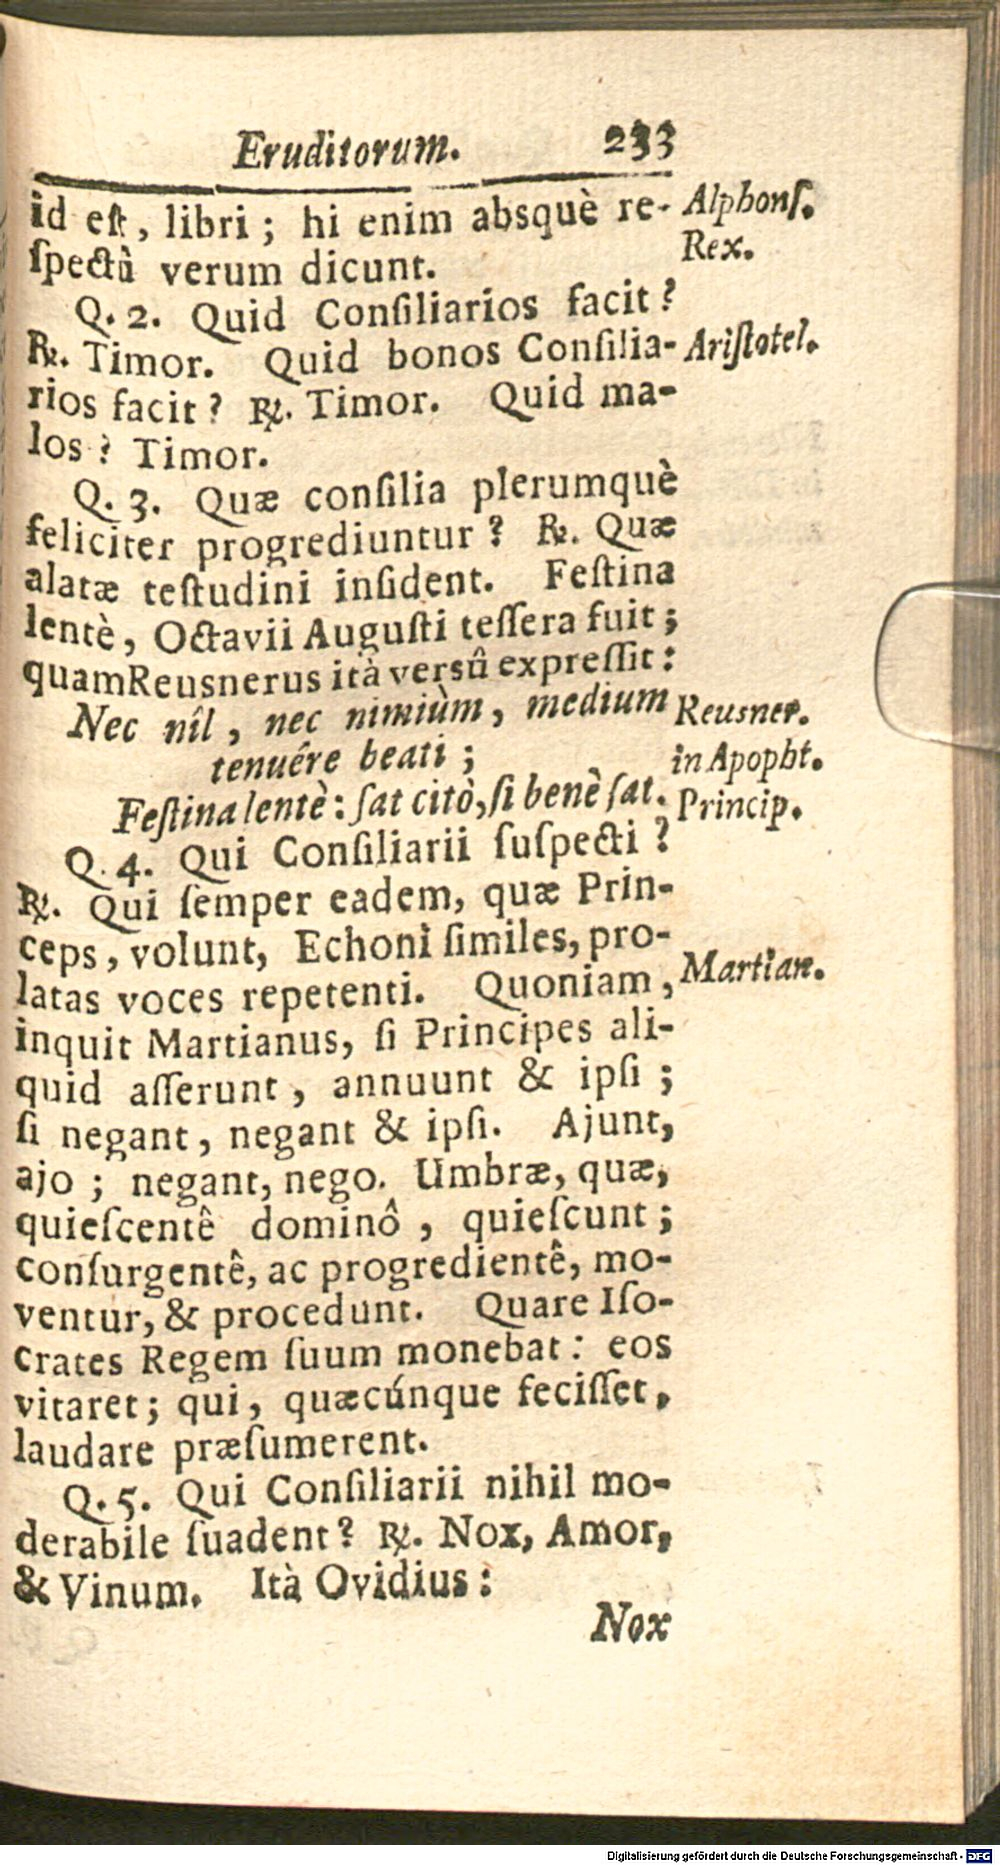 Eruditorum. 233
id eſt, libri; hi enim absquè re- Alphonſ.
ſpectû verum dicunt. Rex.
Q. 2. Quid Conſiliarios facit?
℞. Timor. Quid bonos Conſilia- Ariſtotel.
rios facit? ℞. Timor. Quid ma-
los? Timor.
Q. 3. Quæ conſilia plerumquè
feliciter progrediuntur? ℞. Quæ
alatæ teſtudini inſident. Feſtina
lentè, Octavii Auguſti teſſera fuit;
quam Reusnerus ità versû expreſſit:
Nec nîl, nec nimiùm, medium Reusner.
tenuére beati; in Apopht.
Feſtina lentè: ſat citò, ſi benè ſat. Princip.
Q. 4. Qui Conſiliarii ſuſpecti?
℞. Qui ſemper eadem, quæ Prin-
ceps, volunt, Echoni ſimiles, pro-
latas voces repetenti. Quoniam, Martian.
inquit Martianus, ſi Principes ali-
quid aſſerunt, annuunt & ipſi;
ſi negant, negant & ipſi. Ajunt,
ajo; negant, nego. Umbræ, quæ,
quieſcentê dominô, quieſcunt;
conſurgentê, ac progredientê, mo-
ventur, & procedunt. Quare Iſo-
crates Regem ſuum monebat: eos
vitaret; qui, quæcúnque feciſſet,
laudare præſumerent.
Q. 5. Qui Conſiliarii nihil mo-
derabile ſuadent? ℞. Nox, Amor,
& Vinum. Ità Ovidius:
Nox
Digitalisierung gefördert durch die Deutsche Forschungsgemeinschaft - DFG